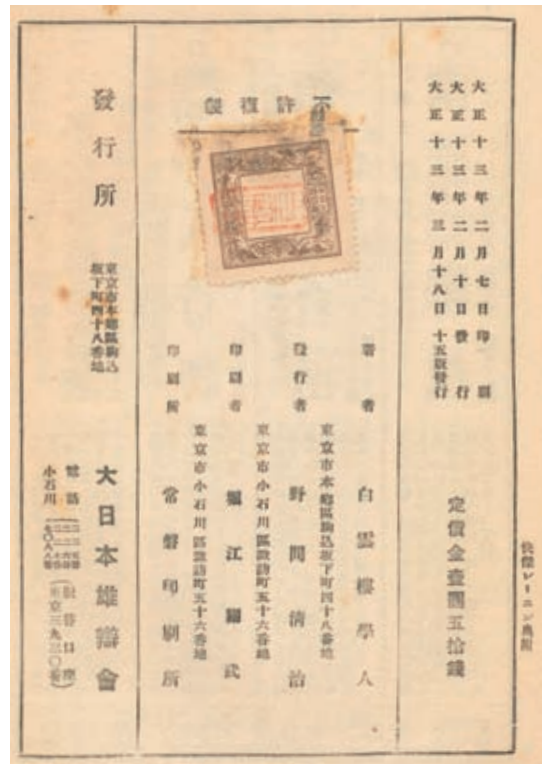 大正十三年二月七日印刷
大正十三年二月十日發行
大正十三年三月十八日十五版發行
定價金壹圓五拾錢
不許複製
著者 白雲樓學人
東京市本鄕區駒込坂下町四十八番地
發行者 野間清治
東京市小石川區諏訪町五十六番地
印刷者 堀江
東京市小石川區諏訪町五十六番地
印刷所 常磐印刷所
發行所
東京市本鄕區駒込
坂下町四十八番地
大日本雄辯會
電話
小石川
振替口座
東京三九三〇番